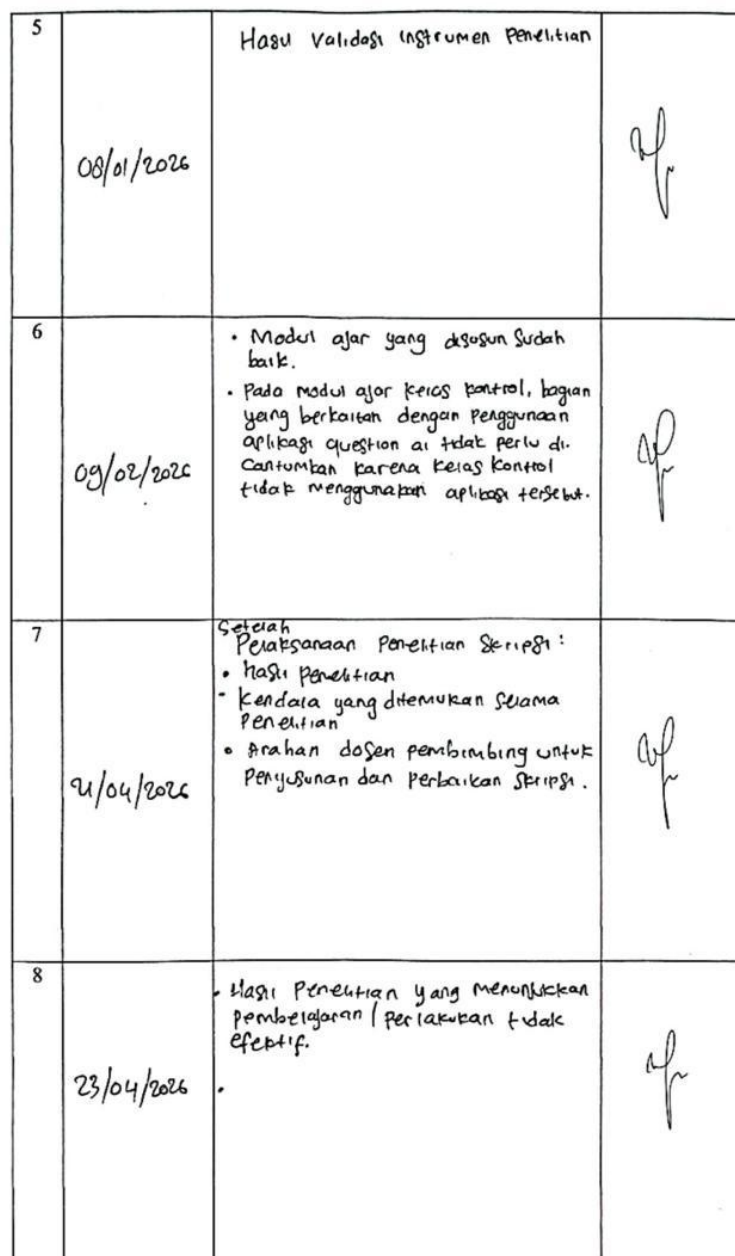 5
Hasil Validasi Instrumen Penelitian
08/01/2026
6
• Modul ajar yang disusun sudah
baik.
• Pada modul ajar kelas kontrol, bagian
yang berkaitan dengan penggunaan
aplikasi question ai tidak perlu di-
cantumkan karena kelas kontrol
tidak menggunakan aplikasi tersebut.
09/02/2026
7
Setelah
Pelaksanaan Penelitian Skripsi :
• hasil penelitian
• kendala yang ditemukan selama
Penelitian
• Arahan dosen pembimbing untuk
Penyusunan dan perbaikan skripsi.
21/04/2026
8
• Hasil Penelitian yang menunjukkan
pembelajaran / perlakukan tidak
efektif.
•
23/04/2026